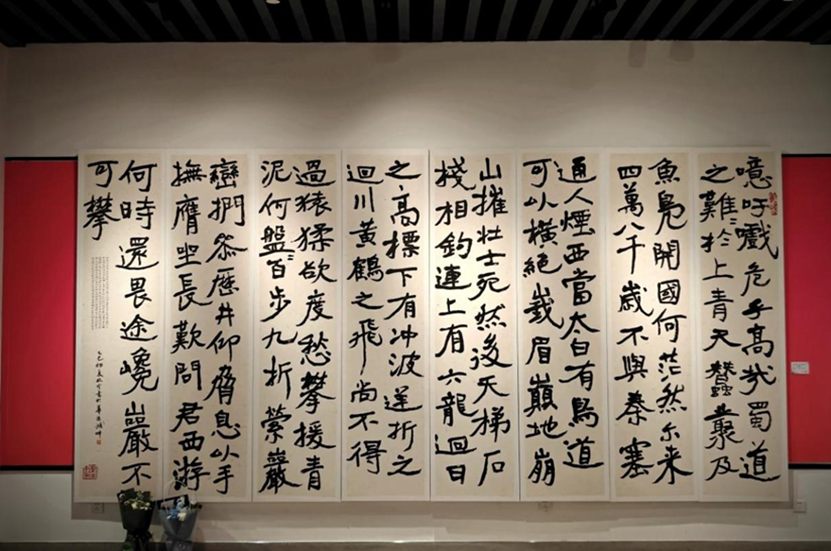 噫吁戲危乎高哉蜀道
之難〻於上青天蠶叢及
魚鳧開國何茫然尓来
四萬八千歲不與秦塞
通人煙西當太白有鳥道
可以橫絕峩眉巔地崩
山摧壯士死然後天梯石
棧相鈎連上有六龍迴日
之高標下有冲波逆折之
迴川黃鶴之飛尚不得
過猿猱欲度愁攀援青
泥何盤〻百步九折縈巖
巒捫參歷井仰脅息以手
撫膺坐長歎問君西遊
何時還畏途巉巖不
可攀